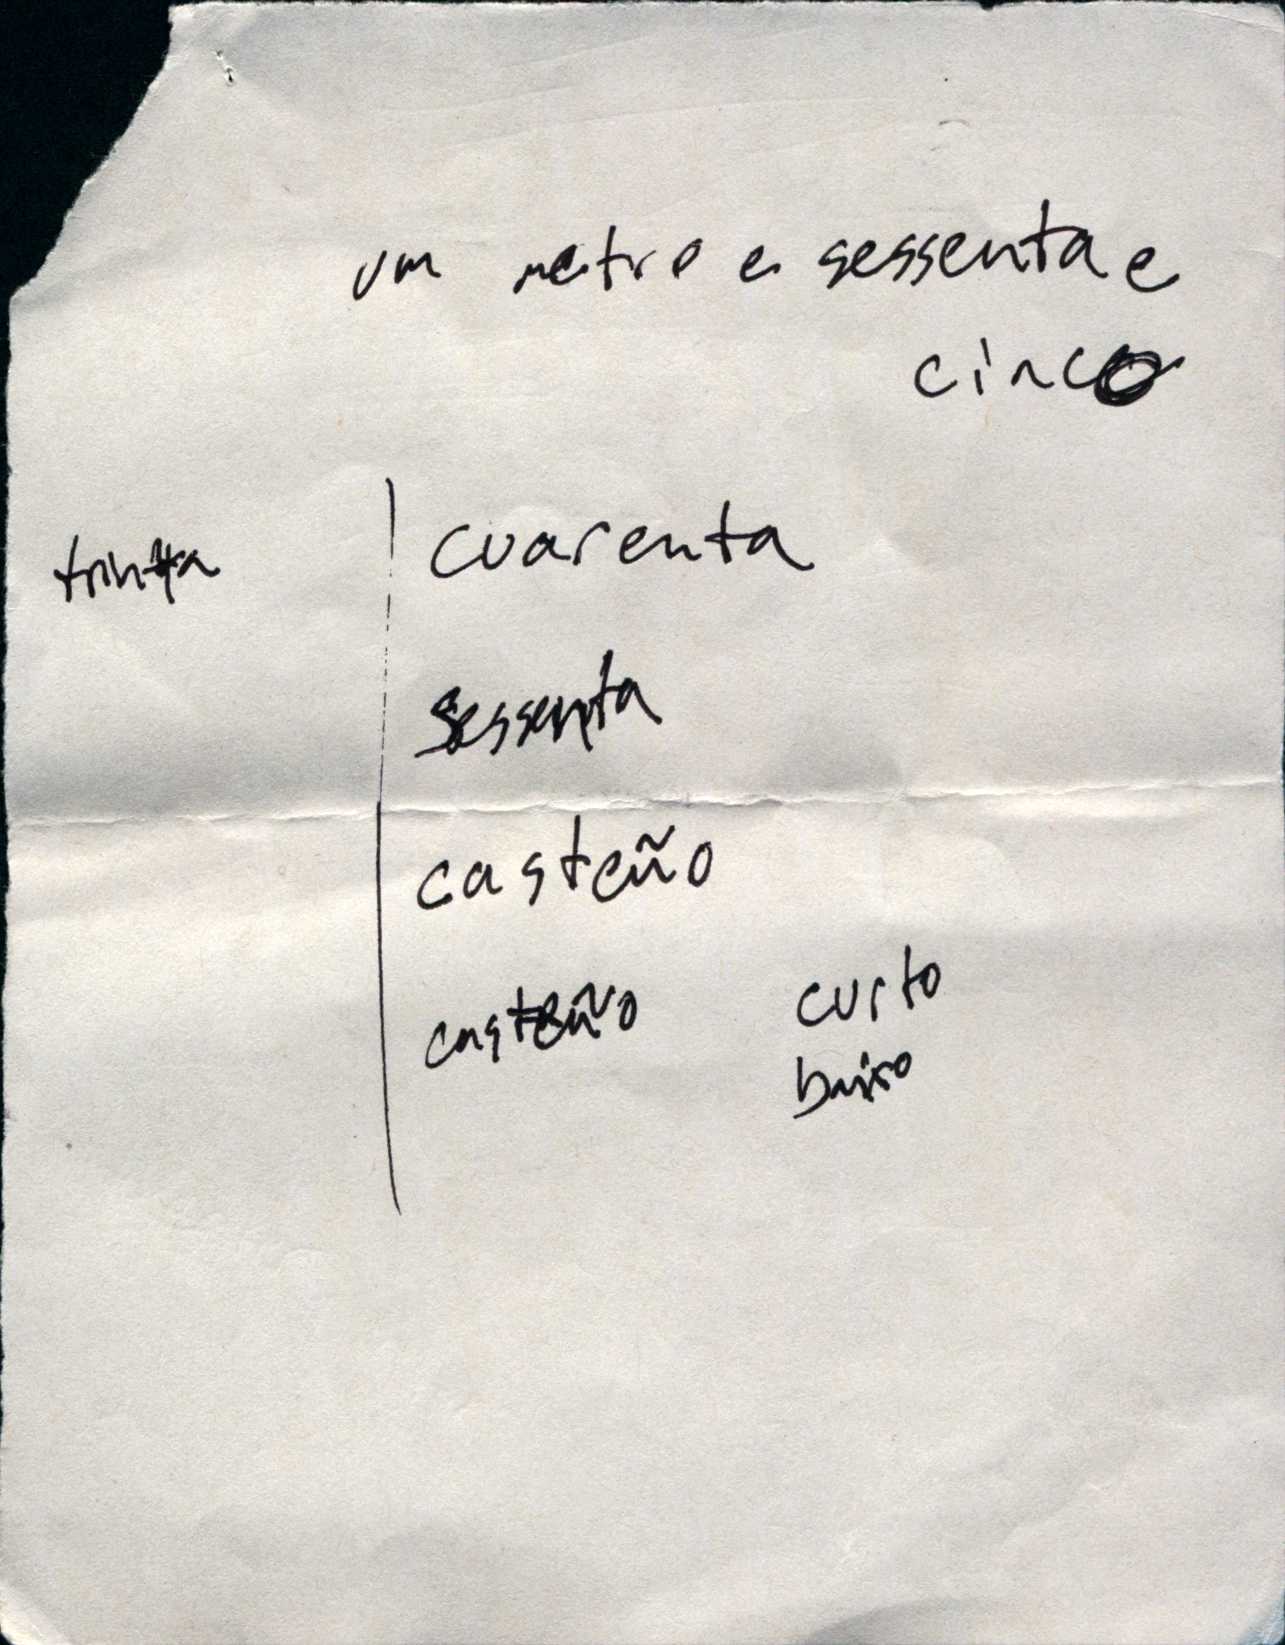 um metro e sessenta e
cinco
trinta
cuarenta
sessenta
casteño
casteño curto
baixo